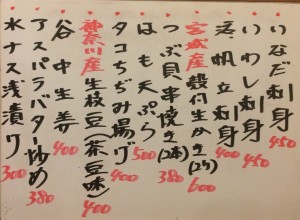 いなだ刺身 450
いわし刺身 450
活帆立刺身 400
宮城産 殻付生かき(2ケ) 600
つぶ貝串焼き(2本) 380
はも天ぷら 500
タコちぢみ揚げ 400
神奈川産 生枝豆(茶豆味) 400
谷中生姜 400
アスパラバター炒め 380
水ナス浅漬け 300